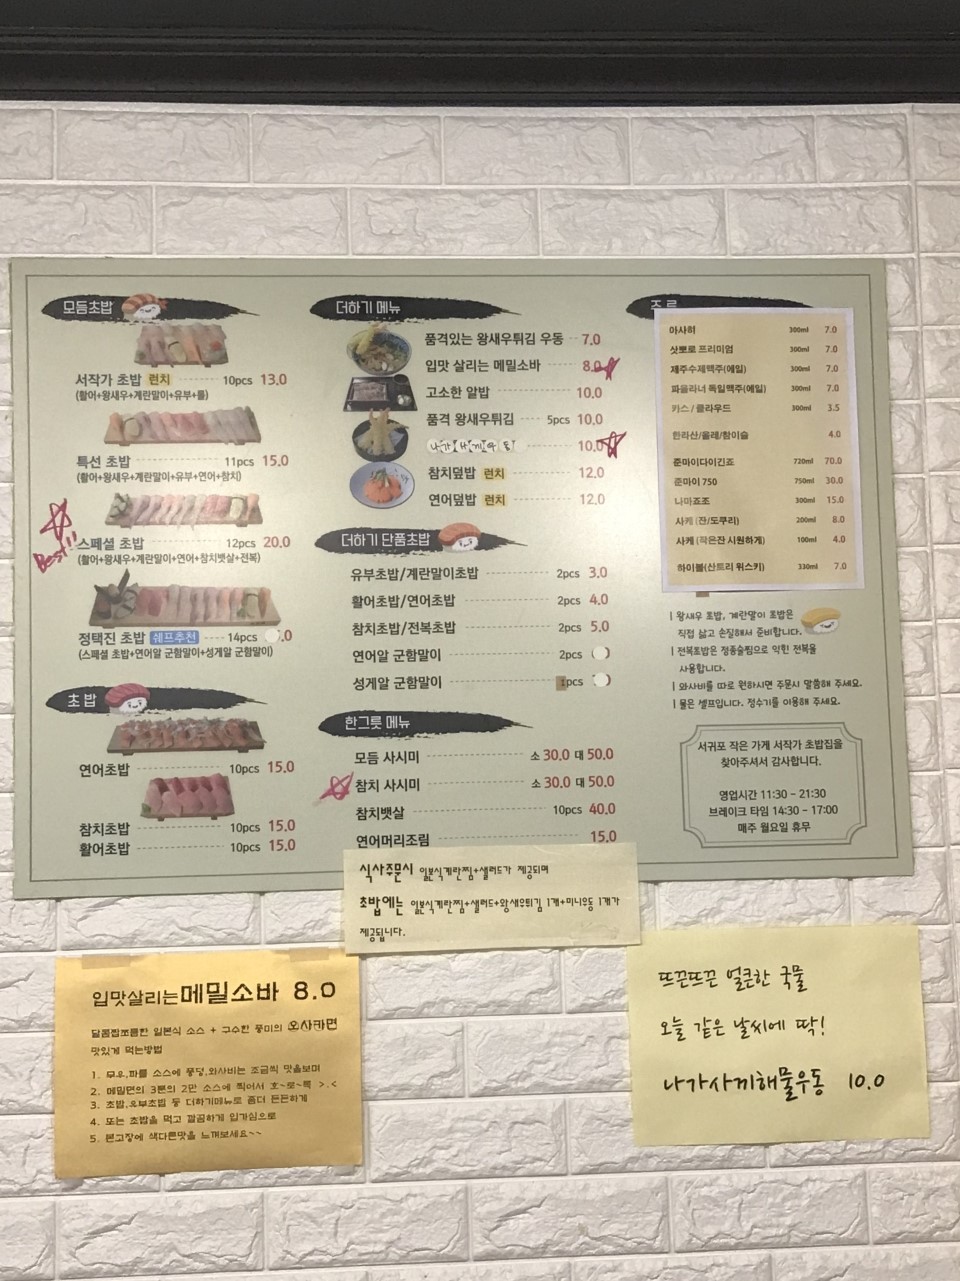 모둠초밥
서작가 초밥 런치 10pcs 13.0
(활어+왕새우+계란말이+유부+롤)
특선 초밥 11pcs 15.0
(활어+왕새우+계란말이+유부+연어+참치)
Best!!
스페셜 초밥 12pcs 20.0
(활어+왕새우+계란말이+연어+참치뱃살+전복)
정택진 초밥 쉐프추천 14pcs .0
(스페셜 초밥+연어알 군함말이+성게알 군함말이)
초밥
연어초밥 10pcs 15.0
참치초밥 10pcs 15.0
활어초밥 10pcs 15.0
더하기 메뉴
품격있는 왕새우튀김 우동 7.0
입맛 살리는 메밀소바 8.0
고소한 알밥 10.0
품격 왕새우튀김 5pcs 10.0
10.0
참치덮밥 런치 12.0
연어덮밥 런치 12.0
더하기 단품초밥
유부초밥/계란말이초밥 2pcs 3.0
활어초밥/연어초밥 2pcs 4.0
참치초밥/전복초밥 2pcs 5.0
연어알 군함말이 2pcs
성게알 군함말이 pcs
한그릇 메뉴
모듬 사시미 소 30.0 대 50.0
참치 사시미 소 30.0 대 50.0
참치뱃살 10pcs 40.0
연어머리조림 15.0
주류
아사히 300ml 7.0
삿뽀로 프리미엄 300ml 7.0
제주수제맥주(에일) 300ml 7.0
파울라너 독일맥주(에일) 300ml 7.0
카스 / 클라우드 300ml 3.5
한라산/올레/참이슬 4.0
준마이다이긴죠 720ml 70.0
준마이 750 750ml 30.0
나마죠조 300ml 15.0
사케 (잔/도쿠리) 200ml 8.0
사케 (작은잔 시원하게) 100ml 4.0
하이볼(산토리 위스키) 330ml 7.0
왕새우 초밥, 계란말이 초밥은
직접 삶고 손질해서 준비합니다.
전복초밥은 정종술찜으로 익힌 전복을
사용합니다.
와사비를 따로 원하시면 주문시 말씀해 주세요.
물은 셀프입니다. 정수기를 이용해 주세요.
서귀포 작은 가게 서작가 초밥집을
찾아주셔서 감사합니다.
영업시간 11:30 - 21:30
브레이크 타임 14:30 - 17:00
매주 월요일 휴무
식사주문시 일본식계란찜+샐러드가 제공되며
초밥에는 일본식계란찜+샐러드+왕새우튀김 1개+미니우동 1개가
제공됩니다.
입맛살리는메밀소바 8.0
달콤짭쪼름한 일본식 소스 + 구수한 풍미의 오사카면
맛있게 먹는방법
1. 무우,파를 소스에 퐁당,와사비는 조금씩 맛을보며
2. 메밀면의 3분의 2만 소스에 찍어서 호~로~록 >.<
3. 초밥,유부초밥 등 더하기메뉴로 좀더 든든하게
4. 또는 초밥을 먹고 깔끔하게 입가심으로
5. 본고장에 색다른맛을 느껴보세요~~
뜨끈뜨끈 얼큰한 국물
오늘 같은 날씨에 딱!
나가사끼해물우동 10.0